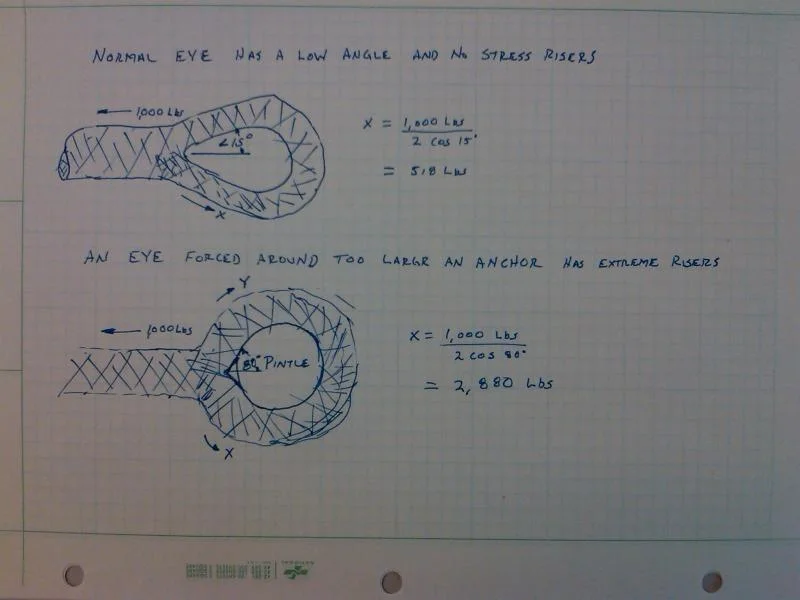 NORMAL EYE HAS A LOW ANGLE AND NO STRESS RISERS
1,000 Lbs
∠15°
X
X = 1,000 Lbs
2 cos 15°
= 518 Lbs
AN EYE FORCED AROUND TOO LARGE AN ANCHOR HAS EXTREME RISERS
Y
1,000 Lbs
80° PINTLE
X
X = 1,000 Lbs
2 cos 80°
= 2,880 Lbs